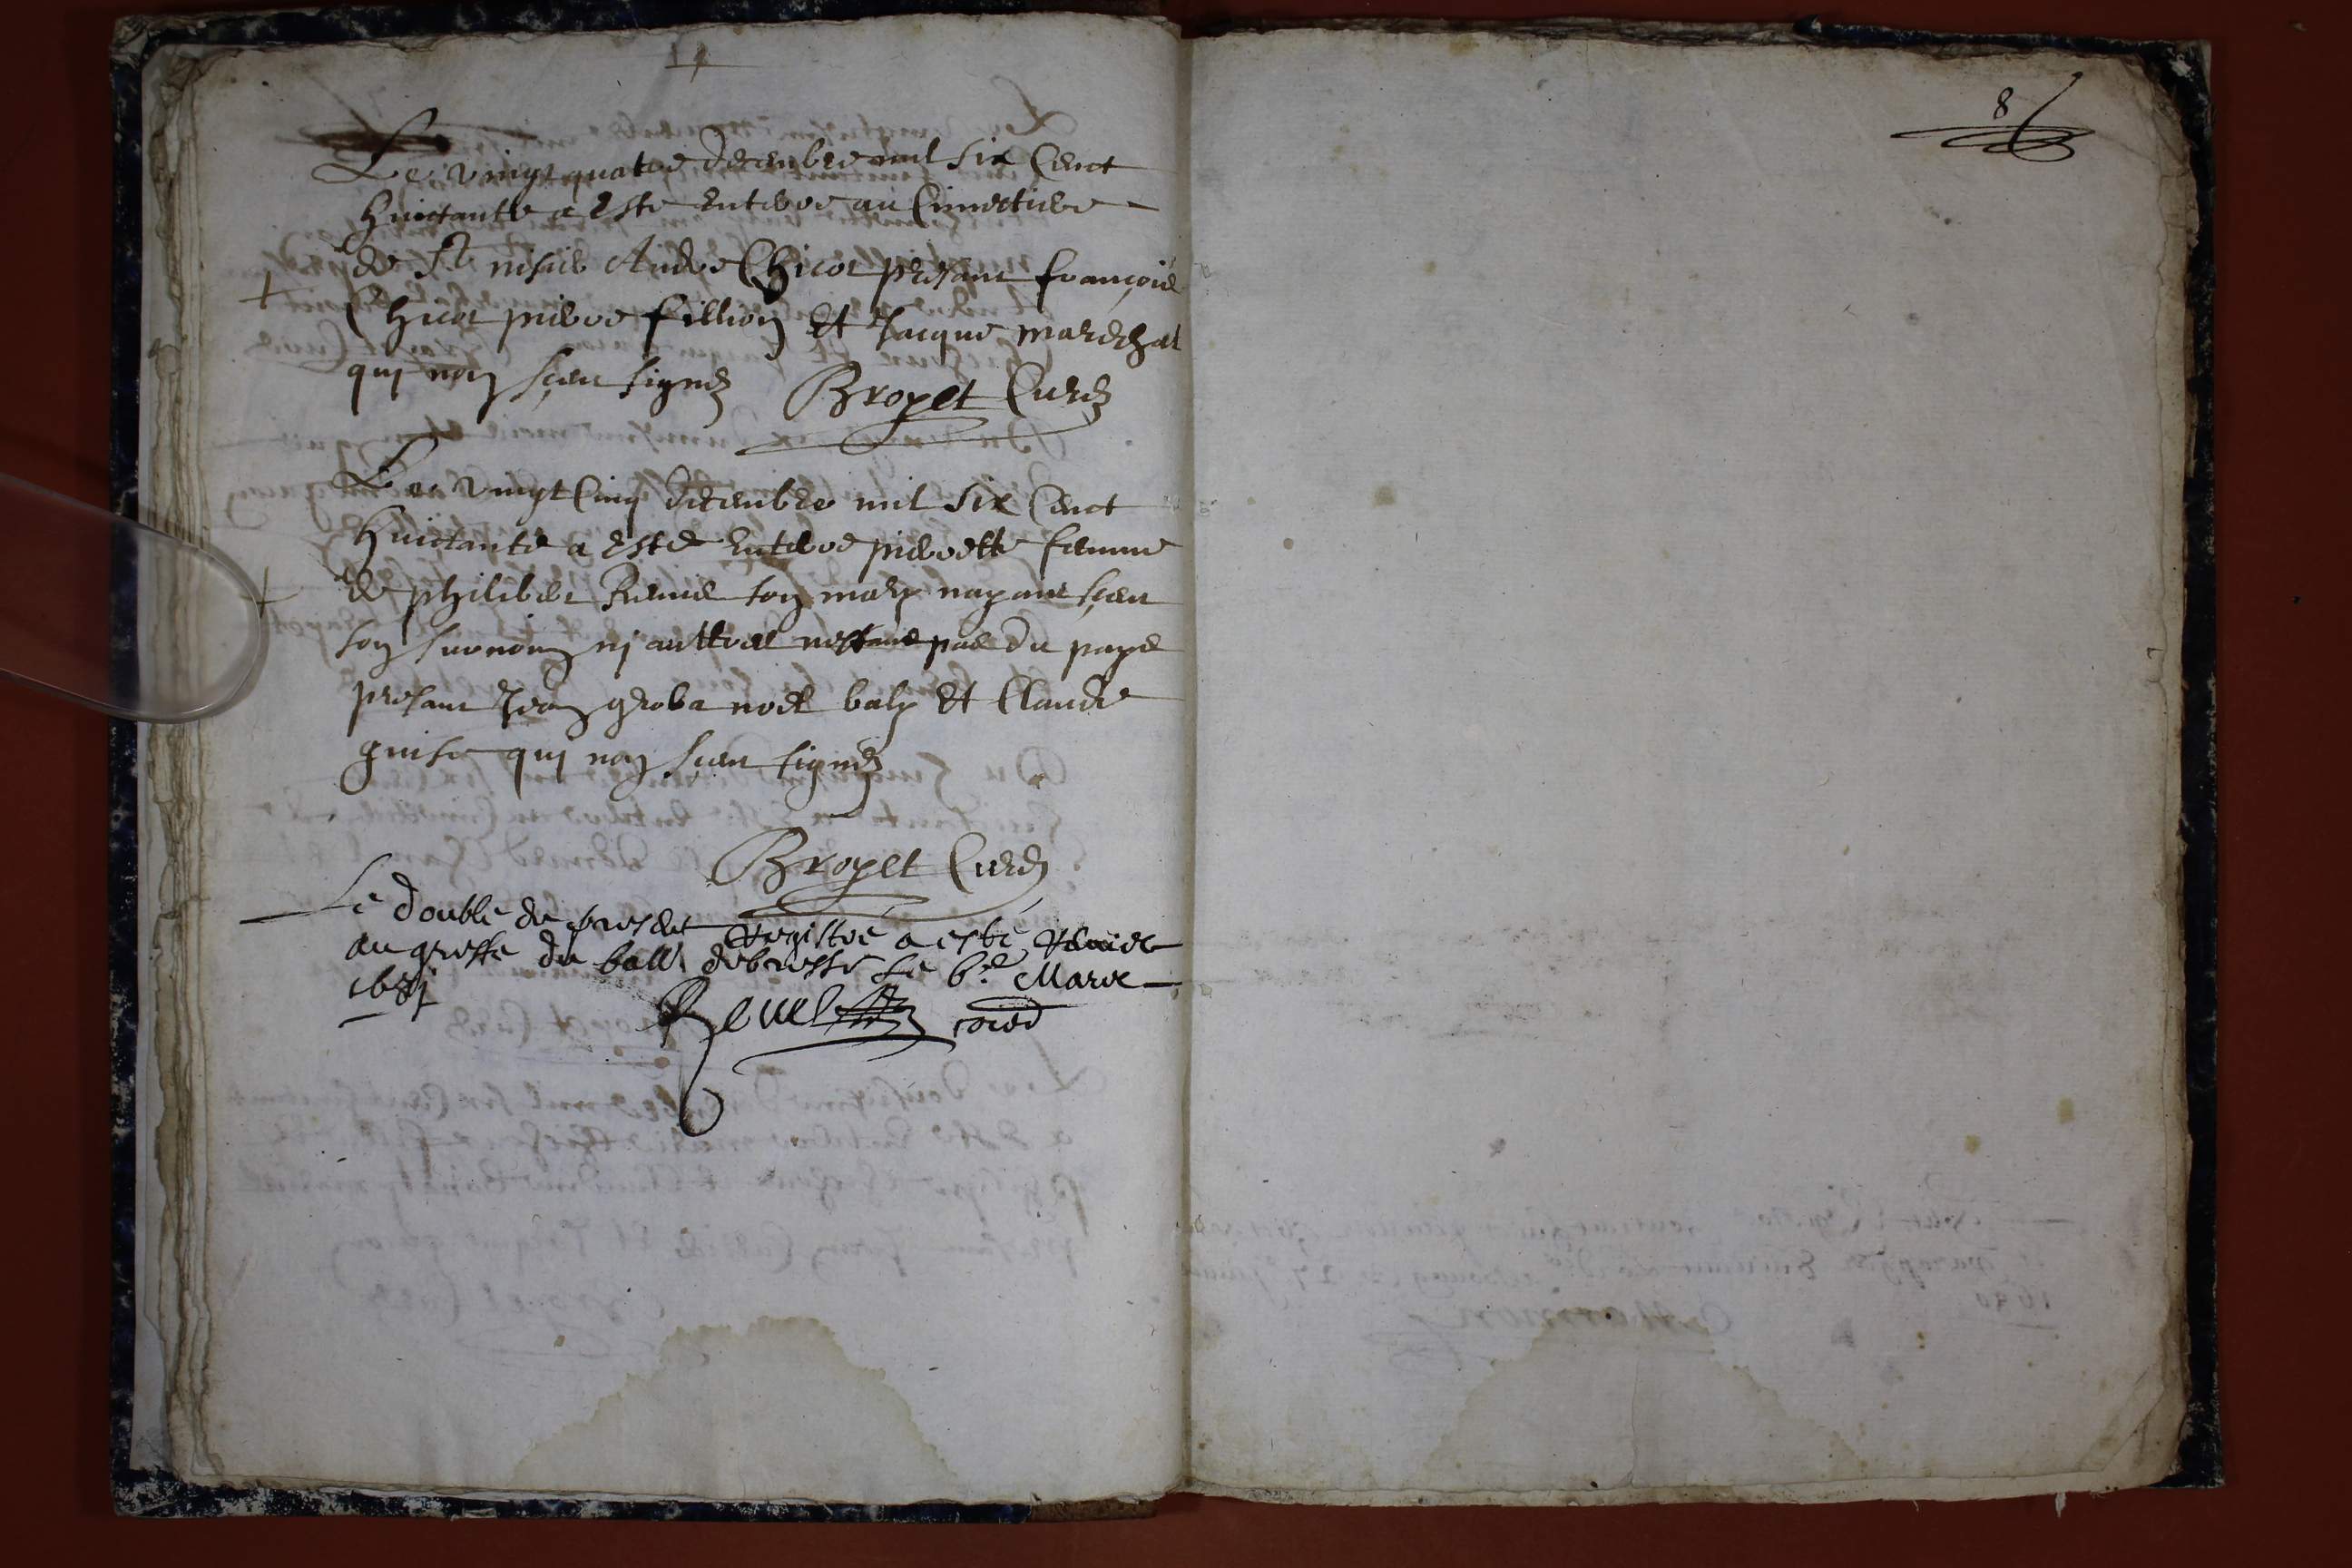 Le vingt quatre decembre mil six Cent
huictante a este enterre au Cimetiere
de St nisie Andre Chicot presant françois
Chicot pierre fillion et Jacque mareschal
qui non sceu signer Broyet Curé
Le vingt Cinq decembre mil six Cent
huictante a este enterre pierrette femme
de philibert son mary nayant sceu
son surnom ni auttres nestant pas du pays
presant Jean groba noel baly et Claude
guise qui non sceu signer
Broyet Curé
Le double du present Registre a esté remis
au greffe du balli. de bresse le 6e Mars
1681
Revel
8